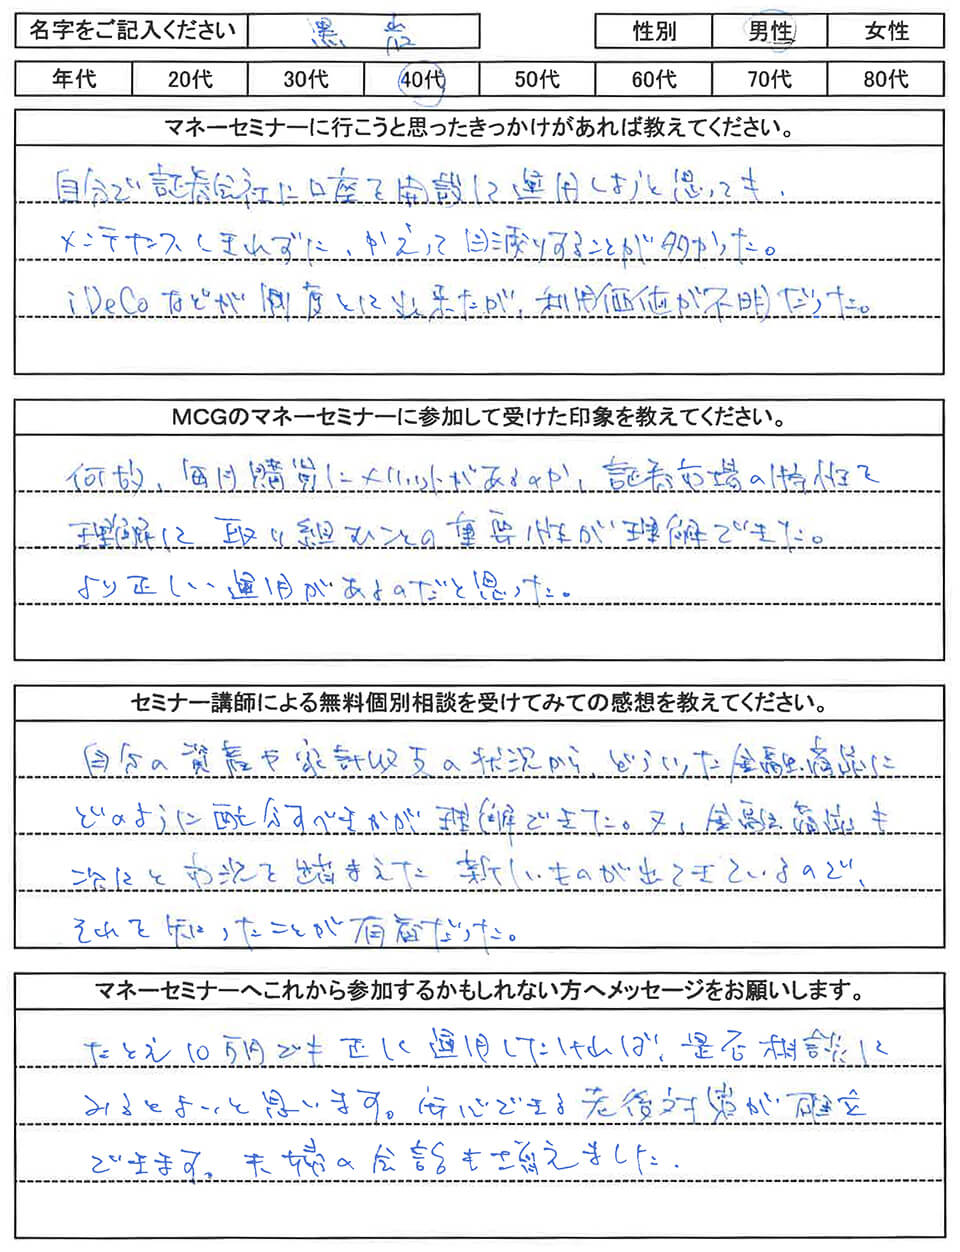 名字をご記入ください 黒岩 性別 男性 女性
年代 20代 30代 40代 50代 60代 70代 80代
マネーセミナーに行こうと思ったきっかけがあれば教えてください。
自分で証券会社に口座を開設して運用しようと思っても、
メンテナンスしきれずに、かえって目減りすることが多かった。
iDeCoなどが制度として出来たが、利用価値が不明だった。
MCGのマネーセミナーに参加して受けた印象を教えてください。
何故、毎月購買にメリットがあるのか、証券市場の特性を
理解して取り組むことの重要性が理解できた。
より正しい運用があるのだと思った。
セミナー講師による無料個別相談を受けてみての感想を教えてください。
自分の資産や家計収支の状況から、どういった金融商品に
どのように配分すべきかが理解できた。又、金融商品も
市況を踏まえた新しいものが出てきているので、
それを知ったことが有益だった。
マネーセミナーへこれから参加するかもしれない方へメッセージをお願いします。
たとえ10万円でも正しく運用したければ、是否相談して
みるとよいと思います。安心できる老後対策が確立
できます。夫婦の会話も増えました。